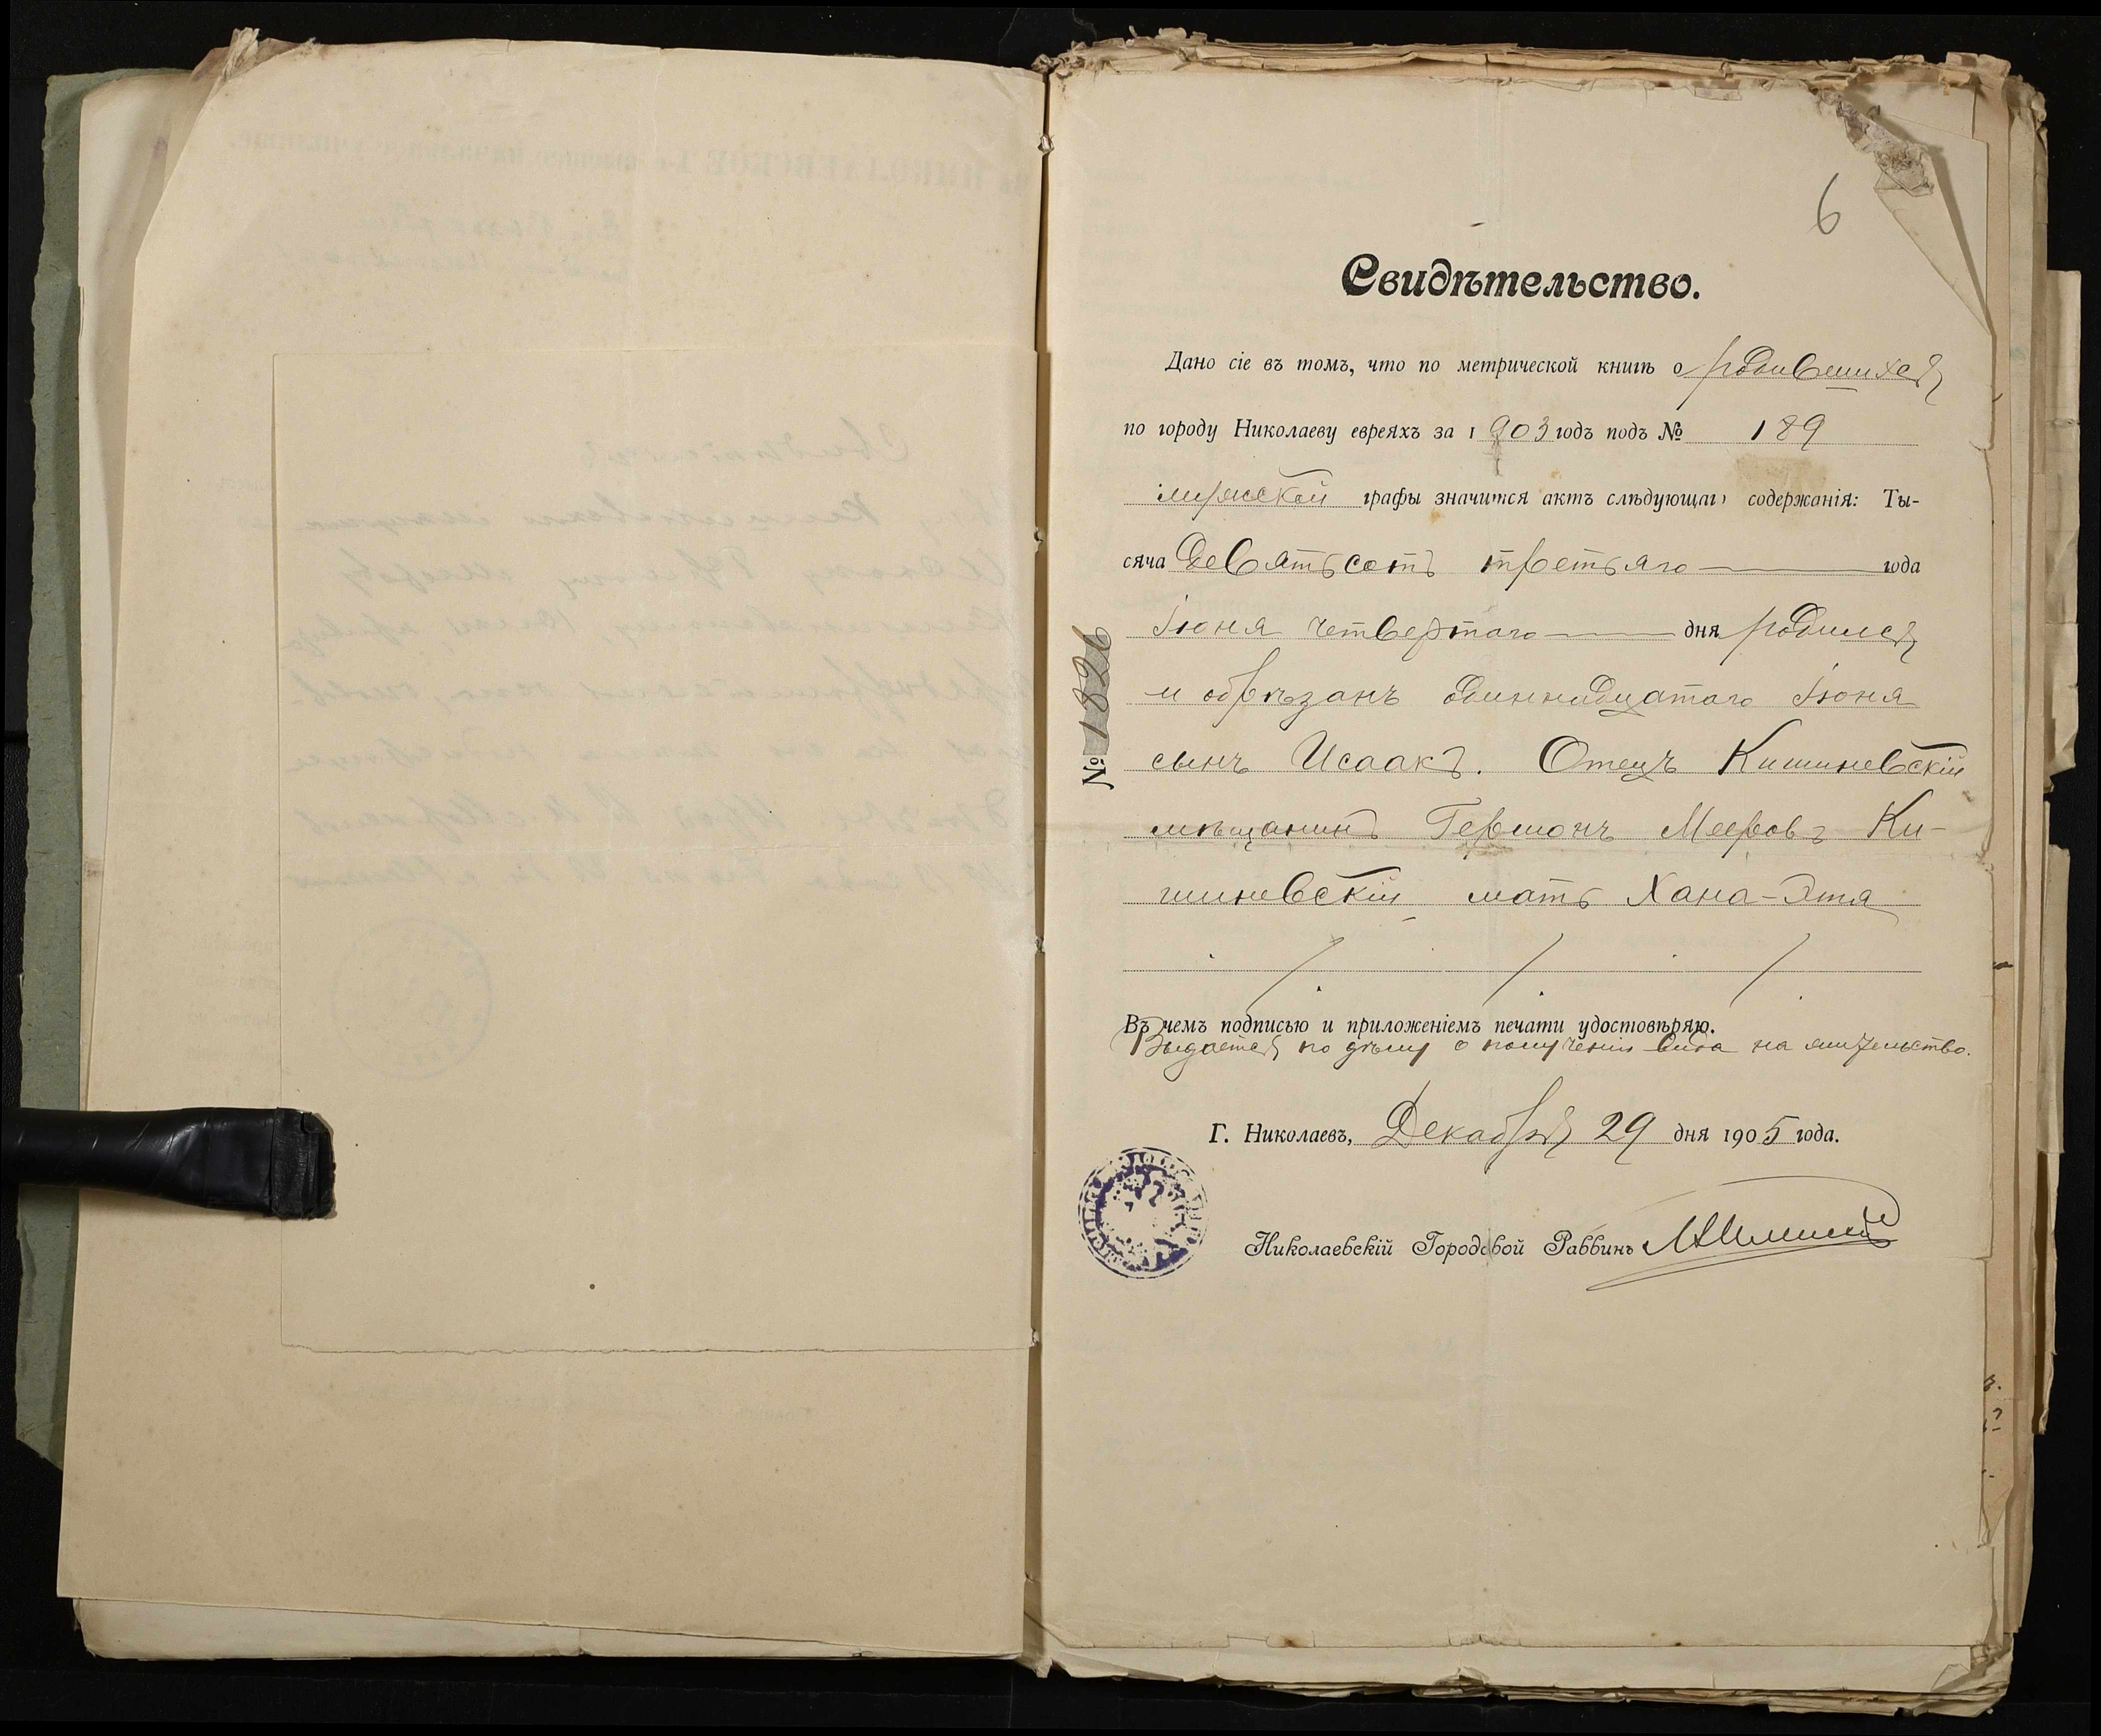 6
Свидѣтельство.
Дано сіе въ томъ, что по метрической книгѣ о родившихся
по городу Николаеву евреяхъ за 1903 годъ подъ № 189
мужской графы значится актъ слѣдующаго содержанія: Ты-
сяча девятьсотъ третьяго года
Іюня четвертаго дня родился
и обрѣзанъ одиннадцатаго Іюня
сынъ Исаакъ. Отецъ Кишиневскій
мѣщанинъ Гершонъ Мееровъ Ки-
шиневскій мать Хана-Этя
№ 1826
Въ чемъ подписью и приложеніемъ печати удостовѣряю.
Выдается по дѣлу о полученіи вида на жительство.
Г. Николаевъ, Декабря 29 дня 1905 года.
Николаевскій Городовой Раввинъ